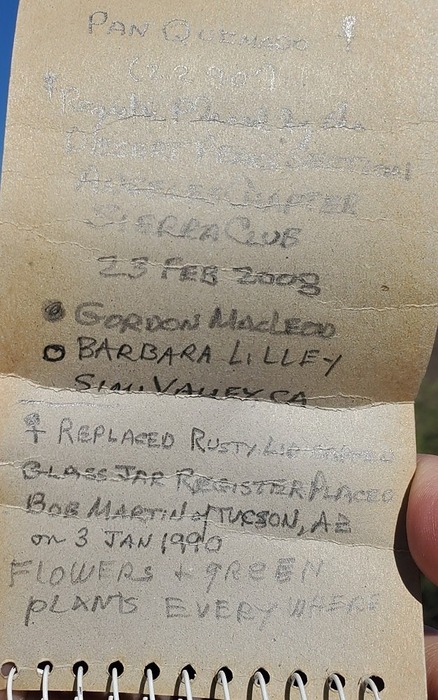 PAN QUEMADO
Register Placed by the
DESERT PEAKS SECTION
ANGELES CHAPTER
SIERRA CLUB
23 FEB 2008
GORDON MACLEOD
BARBARA LILLEY
SIMI VALLEY CA
REPLACED RUSTY LID
GLASS JAR REGISTER PLACED
BOB MARTIN of TUCSON, AZ
on 3 JAN 1990
FLOWERS + gREEN
PLANTS EVERYWHERE